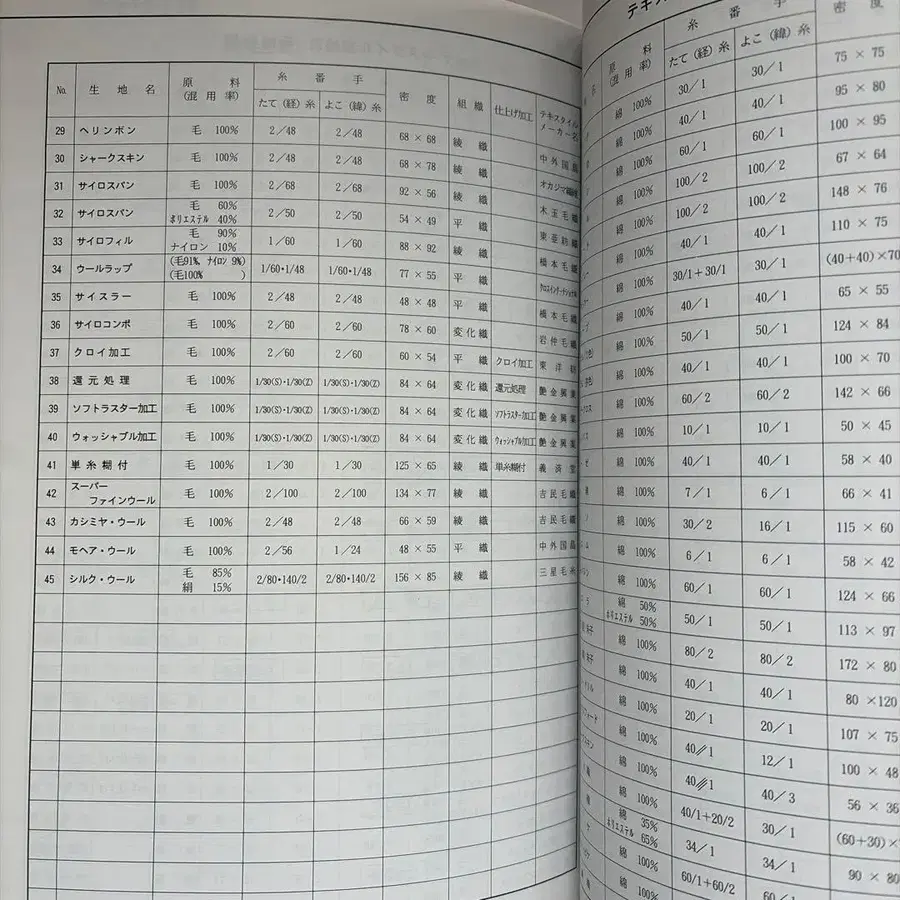 No. 生地名 原料(混用率) 糸番手 たて(経)糸 よこ(緯)糸 密度 組織 仕上げ加工 テキスタイルメーカー名
29 ヘリンボン 毛 100% 2/48 2/48 68 × 68 綾織
30 シャークスキン 毛 100% 2/48 2/48 68 × 78 綾織 中外国島
31 サイロスパン 毛 100% 2/68 2/68 92 × 56 綾織 オカジマ
32 サイロスパン 毛 60% ポリエステル 40% 2/50 2/50 54 × 49 平織 木玉毛織
33 サイロフィル 毛 90% ナイロン 10% 1/60 1/60 88 × 92 綾織 東亜紡織
34 ウールラップ (毛91%, ナイロン 9%) (毛100% ) 1/60・1/48 1/60・1/48 77 × 55 平織 橋本毛織
35 サイスラー 毛 100% 2/48 2/48 48 × 48 平織
36 サイロコンポ 毛 100% 2/60 2/60 78 × 60 変化織 橋本毛織
37 クロイ加工 毛 100% 2/60 2/60 60 × 54 平織 クロイ加工 岩仲毛織
38 還元処理 毛 100% 1/30(S)・1/30(Z) 1/30(S)・1/30(Z) 84 × 64 変化織 還元処理 東洋紡
39 ソフトラスター加工 毛 100% 1/30(S)・1/30(Z) 1/30(S)・1/30(Z) 84 × 64 変化織 ソフトラスター加工 艶金興業
40 ウォッシャブル加工 毛 100% 1/30(S)・1/30(Z) 1/30(S)・1/30(Z) 84 × 64 変化織 ウォッシャブル加工 艶金興業
41 単糸糊付 毛 100% 1/30 1/30 125 × 65 綾織 単糸糊付 義済堂
42 スーパーファインウール 毛 100% 2/100 2/100 134 × 77 綾織 吉民毛織
43 カシミヤ・ウール 毛 100% 2/48 2/48 66 × 59 綾織 吉民毛織
44 モヘア・ウール 毛 100% 2/56 1/24 48 × 55 平織 中外国島
45 シルク・ウール 毛 85% 絹 15% 2/80・140/2 2/80・140/2 156 × 85 綾織 三星毛糸
テキス
原料(混用率) 糸番手 たて(経)糸 よこ(緯)糸 密度
綿 100% 30/1 30/1 75 × 75
綿 100% 40/1 40/1 95 × 80
綿 100% 60/1 60/1 100 × 95
綿 100% 100/2 100/2 67 × 64
綿 100% 100/2 100/2 148 × 76
綿 100% 40/1 40/1 110 × 75
綿 100% 30/1+30/1 30/1 (40+40)×70
綿 100% 40/1 40/1 65 × 55
綿 100% 50/1 50/1 124 × 84
綿 100% 40/1 40/1 100 × 70
綿 100% 60/2 60/2 142 × 66
綿 100% 10/1 10/1 50 × 45
綿 100% 40/1 40/1 58 × 40
綿 100% 7/1 6/1 66 × 41
綿 100% 30/2 16/1 115 × 60
綿 100% 6/1 6/1 58 × 42
綿 100% 60/1 60/1 124 × 66
綿 50% ポリエステル 50% 50/1 50/1 113 × 97
綿 100% 80/2 80/2 172 × 80
綿 100% 40/1 40/1 80 ×120
綿 100% 20/1 20/1 107 × 75
綿 100% 40//1 12/1 100 × 48
綿 100% 40///1 40/3 56 × 36
綿 100% 40/1+20/2 30/1 (60+30)×
綿 35% ポリエステル 65% 34/1 34/1 90 × 80
綿 100% 60/1+60/2 60/1
綿 100%